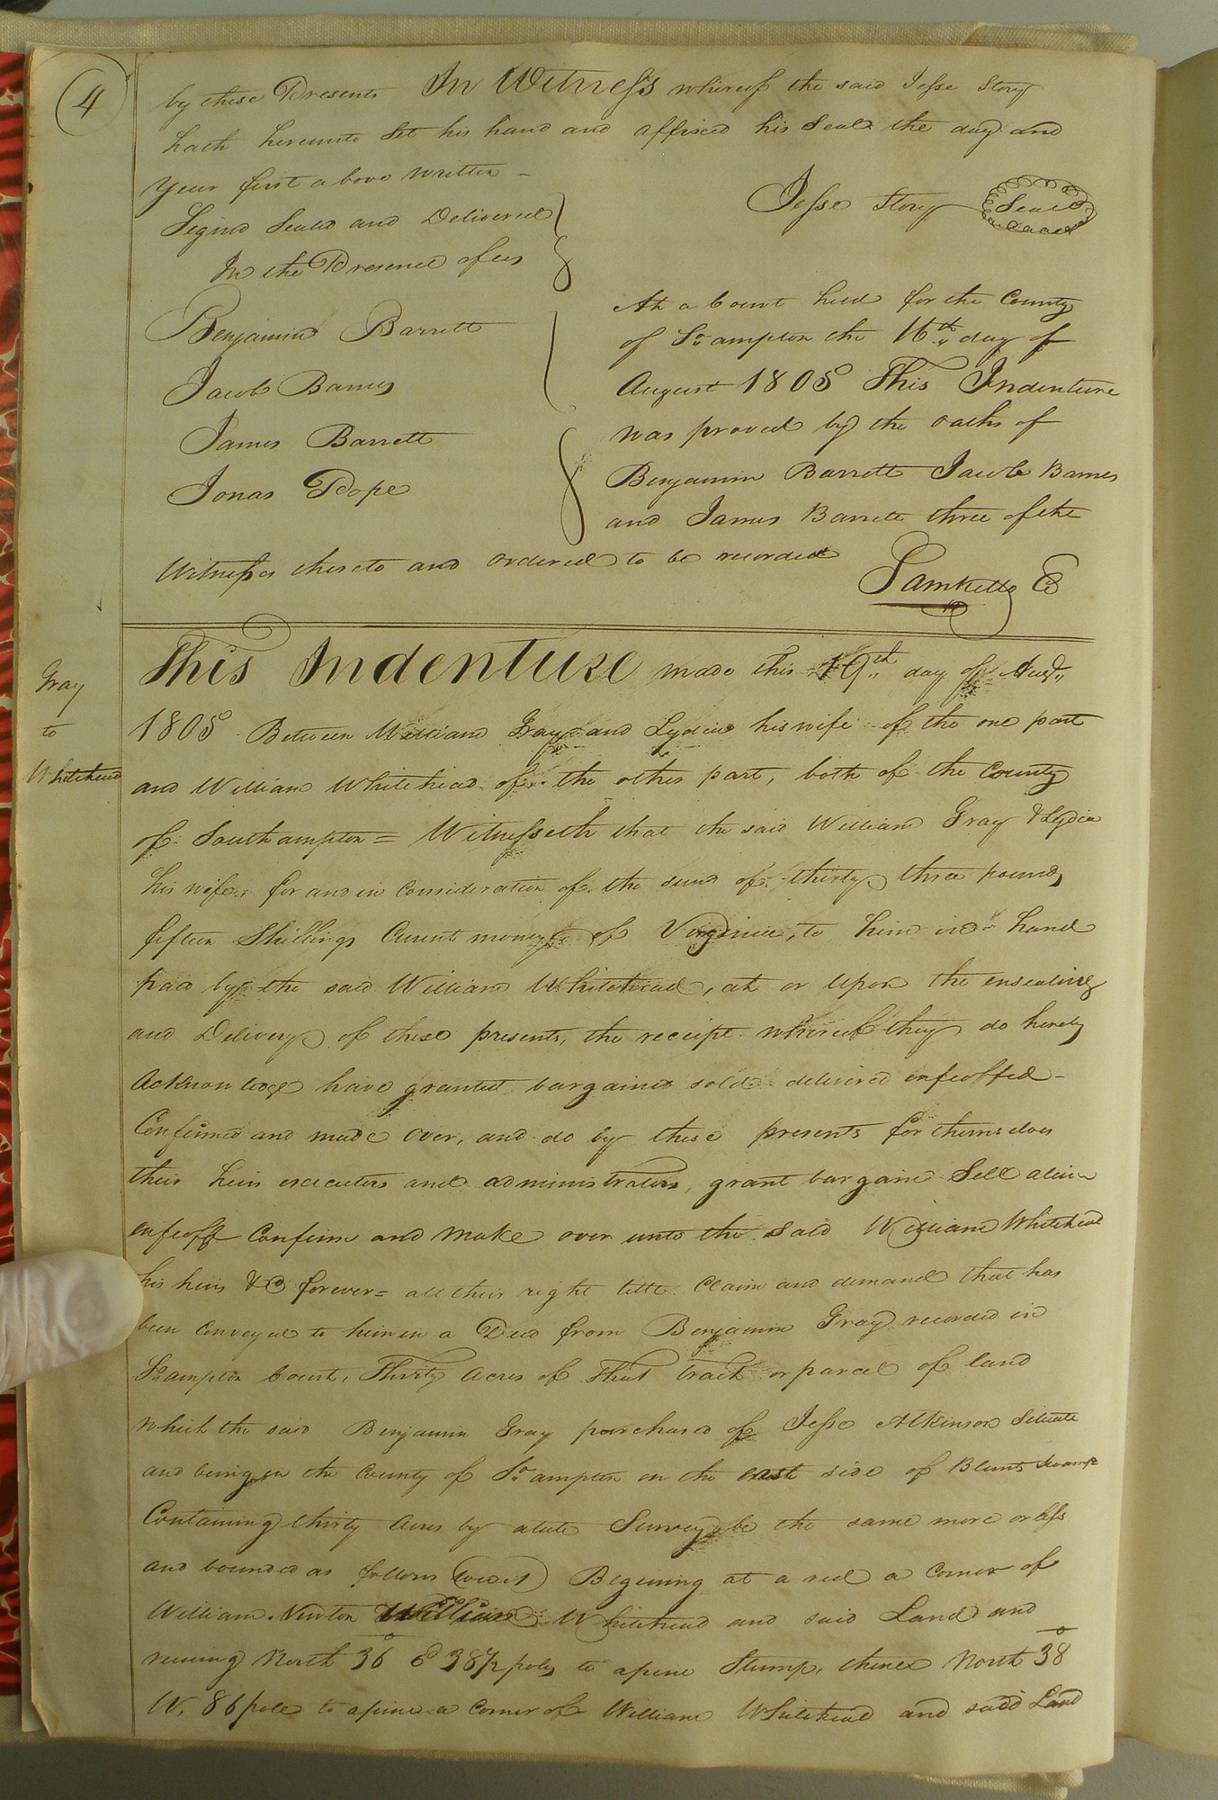 4
by these Presents In Witness whereof the said Jesse Story
hath hereunto Set his hand and affixed his Seal the day and
Year first above written -
Signd Seald and Delivered
In the Presence of us
Jesse Story Seal
Benjamin Barrett
Jacob Barnes
James Barrett
Jonas Pope
At a Court held for the County
of So.ampton the 16th day of
August 1805 This Indenture
was proved by the oaths of
Benjamin Barrett Jacob Barnes
and James Barrett three of the
Witnesses thereto and ordered to be recorded
Saml Kello CC
Gray
to
Whitehead
This Indenture made this 19th day of Augt.
1805 Between William Gray and Lydia his wife of the one part
and William Whitehead of the other part, both of the County
of Southampton = Witnesseth that the said William Gray & Lydia
his wife, for and in Consideration of the sum of thirty three pounds,
fifteen Shillings Curent money of Virginia, to him in hand
paid by the said William Whitehead, at or Upon the ensealing
and Delivery of these presents, the receipt whereof they do hereby
Acknowledge have granted bargained sold delivered enfeoffed -
Confirmed and made over, and do by these presents for themselves
their heirs executors and administrators, grant bargain Sell alien
enfeoff Confirm and Make over unto the said William Whitehead
his heirs &c forever = all their right title Claim and demand that has
been Conveyed to him in a Deed from Benjamin Gray recorded in
So.ampton Court, Thirty Acres of that tract or parcel of land
which the said Benjamin Gray purchased of Jesse Atkinson Situate
and being in the County of So.ampton on the east side of Blunts Swamp
Containing thirty Acres by a late Survey be the same more or less
and bounded as follows (towit) Begining at a red a Corner of
William Newton William Whitehead and said Land and
runing North 36° E 38 1/2 poles to a pine Stump, thence North 38°
W. 86 pole to a pine a Corner of William Whitehead and said Land